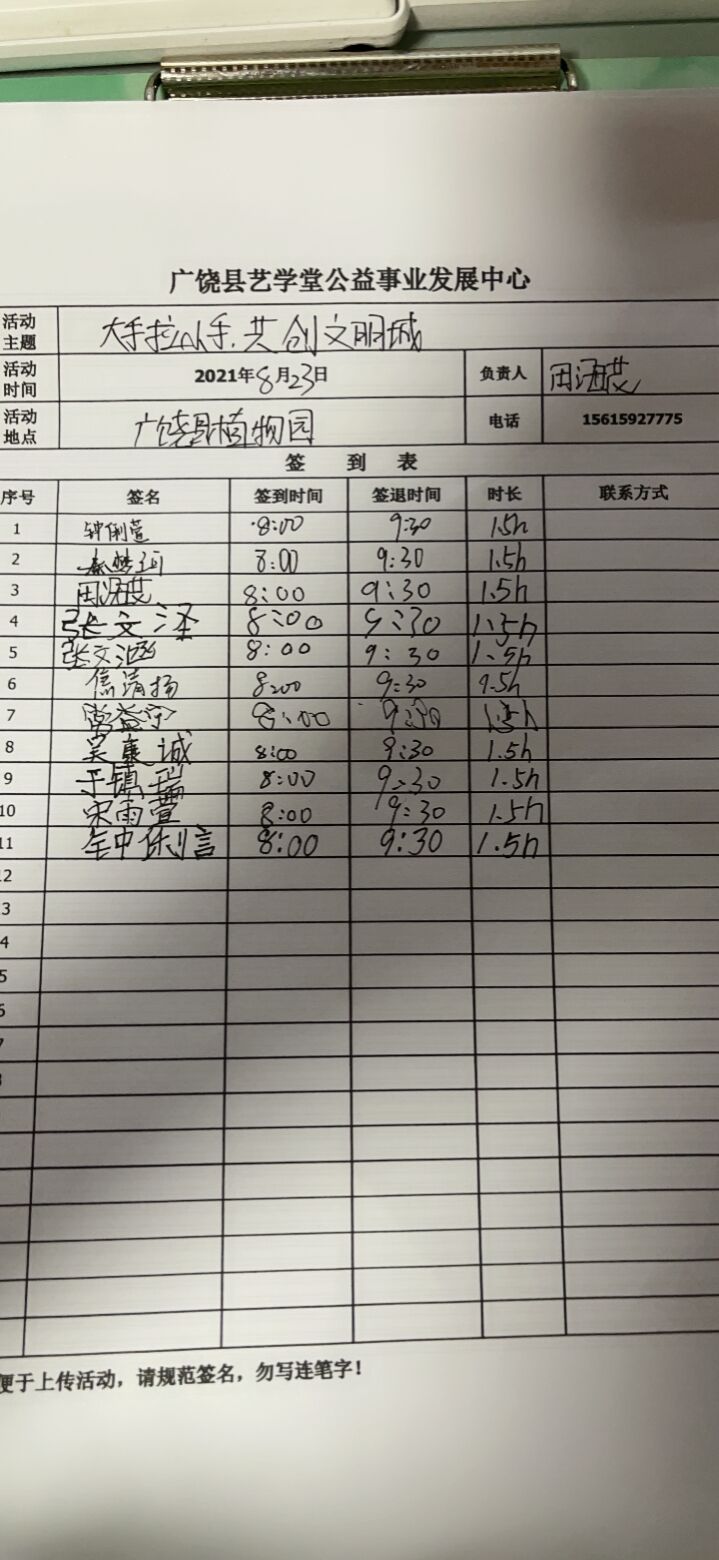 广饶县艺学堂公益事业发展中心
活动主题 大手拉小手.共创文明城
活动时间 2021年8月23日 负责人 田涵茂
活动地点 广饶县植物园 电话 15615927775
签 到 表
序号 签名 签到时间 签退时间 时长 联系方式
1 钟俐萱 8:00 9:30 1.5h
2 8:00 9:30 1.5h
3 8:00 9:30 1.5h
4 张文泽 8:00 9:30 1.5h
5 张文涵 8:00 9:30 1.5h
6 信清扬 8:00 9:30 1.5h
7 常益宁 8:00 9:30 1.5h
8 吴秉诚 8:00 9:30 1.5h
9 于镇瑞 8:00 9:30 1.5h
10 宋雨萱 8:00 9:30 1.5h
11 8:00 9:30 1.5h
12
3
4
5
6
7
便于上传活动，请规范签名，勿写连笔字！